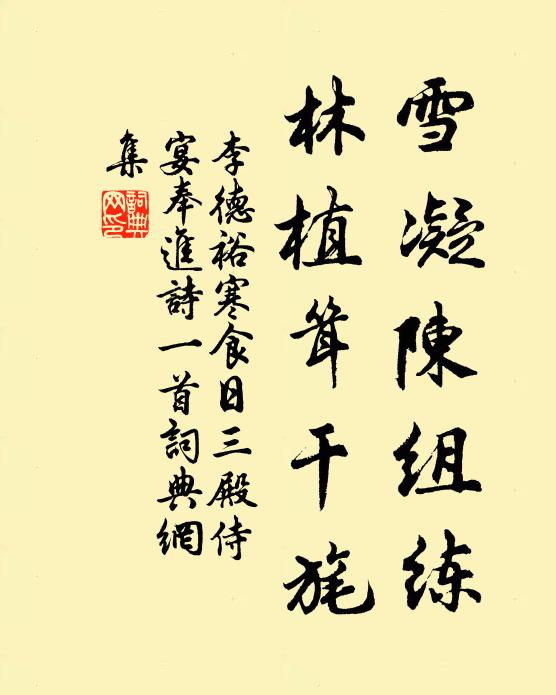 雪凝陳組练
林植耸干旄
李德裕寒食日三殿侍
宴奉進詩一首詞典網
集
詞典
网印